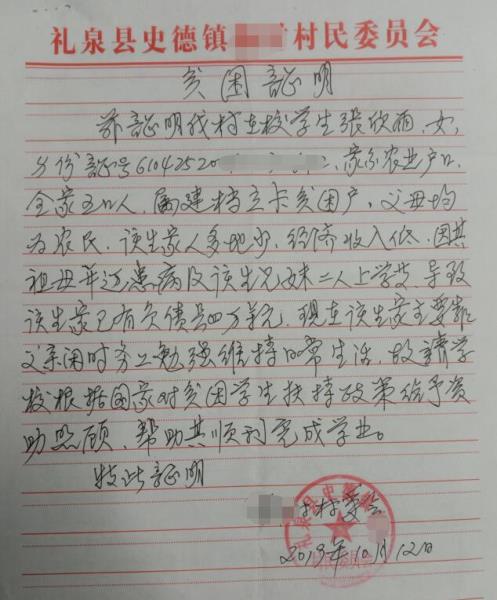 礼泉县史德镇 村民委员会
贫困证明
兹证明我村在校学生张欣雨，女，
身份证号61042520 ，家系农业户口，
全家五口人，属建档立卡贫困户，父母均
为农民，该生家人多地少，经济收入低，因其
祖母年迈患病及该生兄妹二人上学，导致
该生家已有负债四万余元，现在该生家主要靠
父亲闲时务工勉强维持日常生活，故请学
校根据国家对贫困学生扶持政策给予资
助照顾，帮助其顺利完成学业。
特此证明
村委会
2019年10月12日